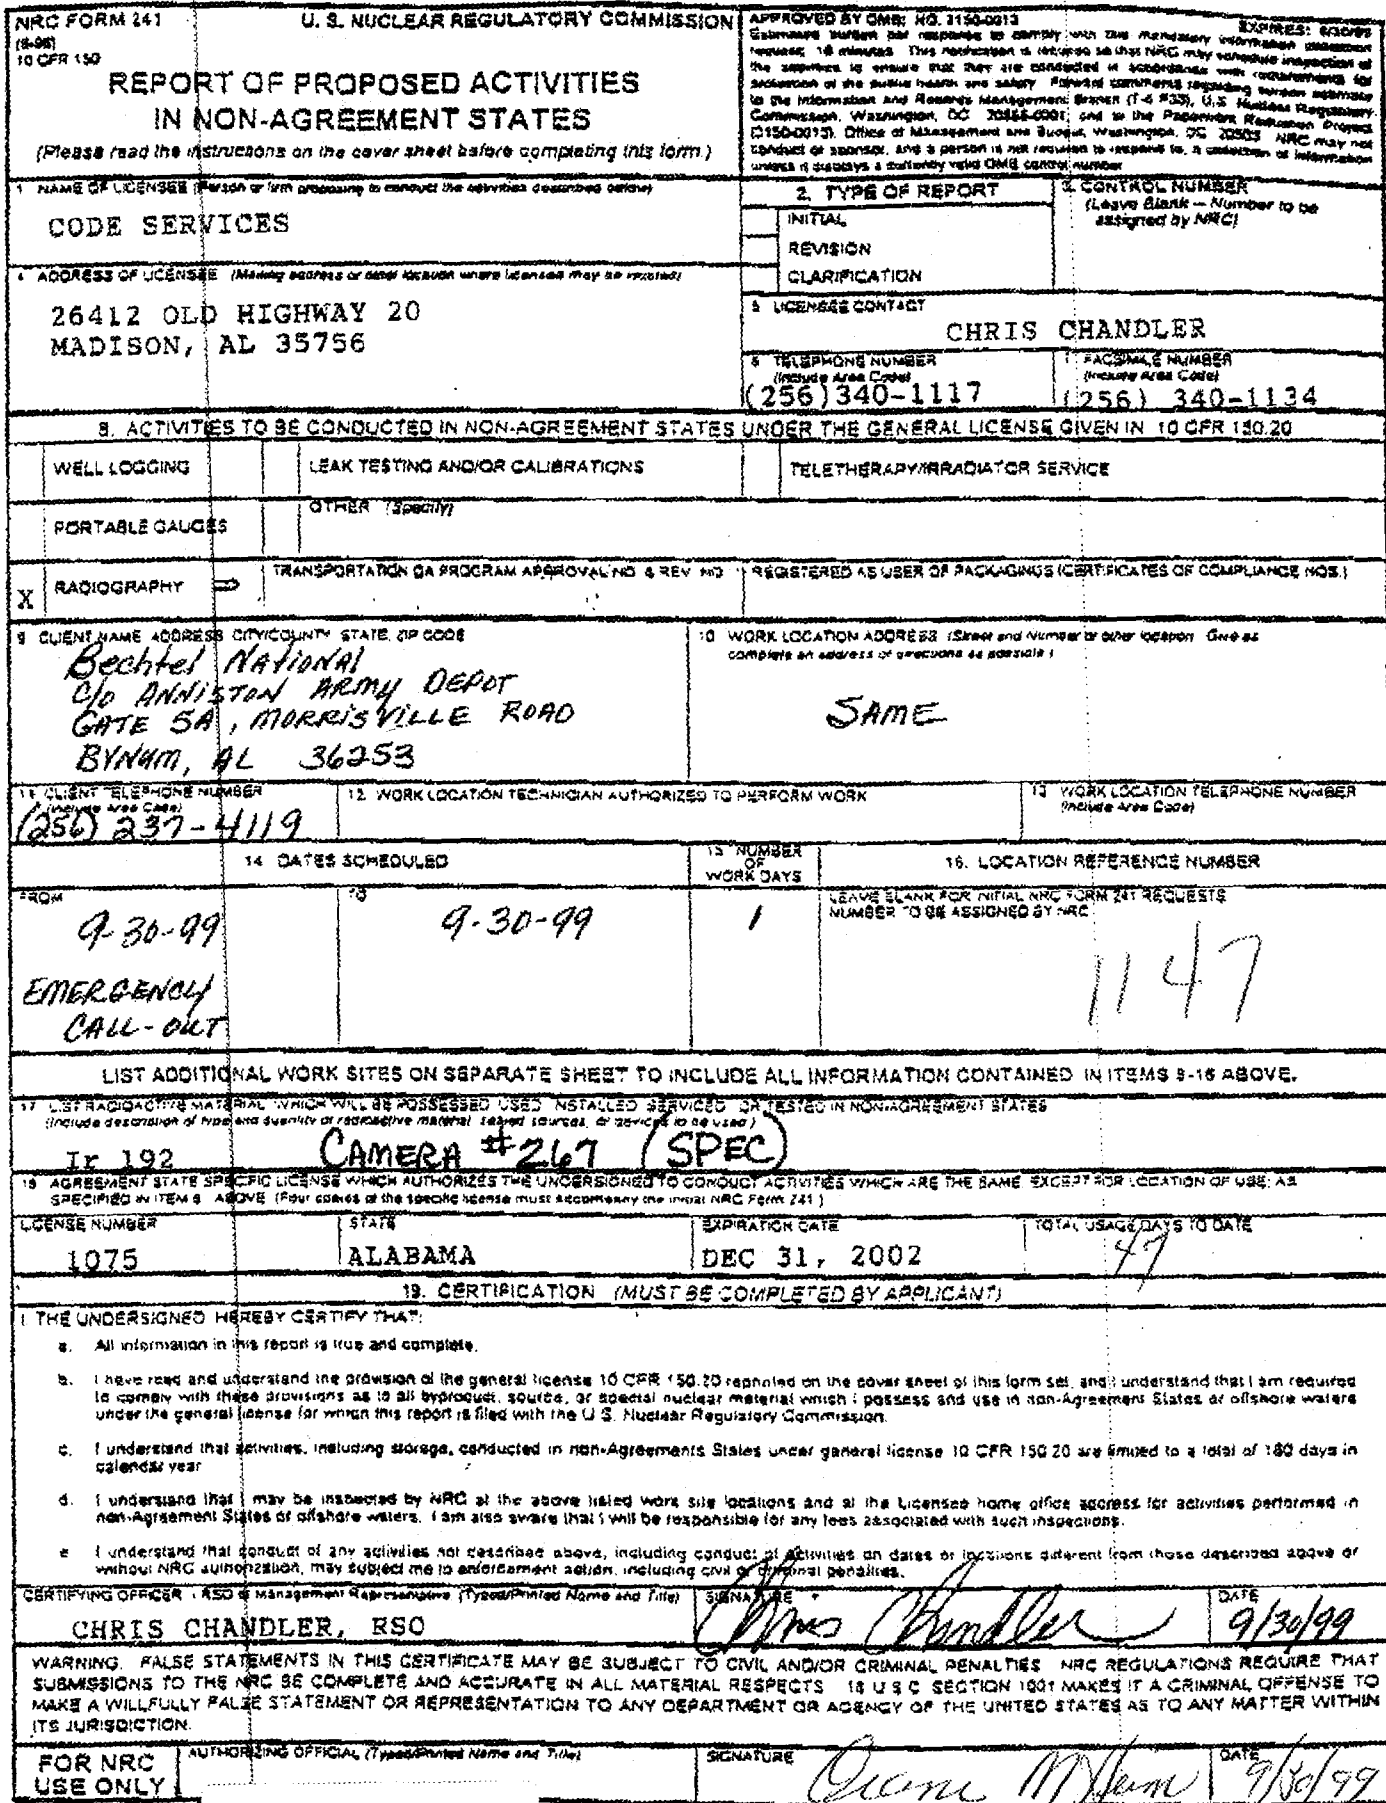 NRC FORM 241
U. S. NUCLEAR REGULATORY COMMISSION
10 CFR 150
REPORT OF PROPOSED ACTIVITIES
IN NON-AGREEMENT STATES
(Please read the instructions on the cover sheet before completing this form.)
APPROVED BY OMB: NO. 3150-0013
EXPIRES:
Estimated burden per response to comply with this mandatory information collection
request: 15 minutes. This notification is required so that NRC may schedule inspection of
the activities to ensure that they are conducted in accordance with requirements for
protection of the public health and safety. Forward comments regarding burden estimate
to the Information and Records Management Branch (T-6 F33), U.S. Nuclear Regulatory
Commission, Washington, DC 20555-0001, and to the Paperwork Reduction Project
(3150-0013), Office of Management and Budget, Washington, DC 20503. NRC may not
conduct or sponsor, and a person is not required to respond to, a collection of information
unless it displays a currently valid OMB control number.
1. NAME OF LICENSEE (Person or firm proposing to conduct the activities described below)
CODE SERVICES
2. TYPE OF REPORT
INITIAL
REVISION
CLARIFICATION
3. CONTROL NUMBER
(Leave Blank - Number to be
assigned by NRC)
4. ADDRESS OF LICENSEE (Mailing address or other location where licensee may be located)
26412 OLD HIGHWAY 20
MADISON, AL 35756
5. LICENSEE CONTACT
CHRIS CHANDLER
6. TELEPHONE NUMBER
(Include Area Code)
(256)340-1117
7. FACSIMILE NUMBER
(Include Area Code)
(256) 340-1134
8. ACTIVITIES TO BE CONDUCTED IN NON-AGREEMENT STATES UNDER THE GENERAL LICENSE GIVEN IN 10 CFR 150.20
WELL LOGGING
LEAK TESTING AND/OR CALIBRATIONS
TELETHERAPY/IRRADIATOR SERVICE
PORTABLE GAUGES
OTHER (Specify)
X RADIOGRAPHY ⇒
TRANSPORTATION QA PROGRAM APPROVAL NO. & REV. NO.
REGISTERED AS USER OF PACKAGINGS (CERTIFICATES OF COMPLIANCE NOS.)
9. CLIENT NAME ADDRESS CITY/COUNTY STATE, ZIP CODE
Bechtel NATIONAL
C/O ANNISTON ARMY DEPOT
GATE 5A, MORRISVILLE ROAD
BYNUM, AL 36253
10. WORK LOCATION ADDRESS (Street and Number or other location. Give as
complete an address or directions as possible.)
SAME
11. CLIENT TELEPHONE NUMBER
(Include Area Code)
(256) 237-4119
12. WORK LOCATION TECHNICIAN AUTHORIZED TO PERFORM WORK
13. WORK LOCATION TELEPHONE NUMBER
(Include Area Code)
14. DATES SCHEDULED
15. NUMBER
OF
WORK DAYS
16. LOCATION REFERENCE NUMBER
FROM
9-30-99
TO
9-30-99
1
LEAVE BLANK FOR INITIAL NRC FORM 241 REQUESTS
NUMBER TO BE ASSIGNED BY NRC
1147
EMERGENCY
CALL-OUT
LIST ADDITIONAL WORK SITES ON SEPARATE SHEET TO INCLUDE ALL INFORMATION CONTAINED IN ITEMS 9-16 ABOVE.
17. LIST RADIOACTIVE MATERIAL WHICH WILL BE POSSESSED, USED, INSTALLED, SERVICED, OR TESTED IN NON-AGREEMENT STATES
(Include description of type and quantity of radioactive material, sealed sources, or devices to be used)
Ir 192 CAMERA #267 (SPEC)
18. AGREEMENT STATE SPECIFIC LICENSE WHICH AUTHORIZES THE UNDERSIGNED TO CONDUCT ACTIVITIES WHICH ARE THE SAME, EXCEPT FOR LOCATION OF USE, AS
SPECIFIED IN ITEM 8 ABOVE (Four copies of the specific license must accompany the initial NRC Form 241)
LICENSE NUMBER
1075
STATE
ALABAMA
EXPIRATION DATE
DEC 31, 2002
TOTAL USAGE DAYS TO DATE
47
19. CERTIFICATION (MUST BE COMPLETED BY APPLICANT)
I, THE UNDERSIGNED, HEREBY CERTIFY THAT:
a. All information in this report is true and complete.
b. I have read and understand the provision of the general license 10 CFR 150.20 reprinted on the cover sheet of this form set, and I understand that I am required
to comply with these provisions as to all byproduct, source, or special nuclear material which I possess and use in non-Agreement States or offshore waters
under the general license for which this report is filed with the U.S. Nuclear Regulatory Commission.
c. I understand that activities, including storage, conducted in non-Agreements States under general license 10 CFR 150.20 are limited to a total of 180 days in
calendar year
d. I understand that I may be inspected by NRC at the above listed work site locations and at the Licensee home office address for activities performed in
non-Agreement States or offshore waters. I am also aware that I will be responsible for any fees associated with such inspections.
e I understand that conduct of any activities not described above, including conduct of activities on dates or locations different from those described above or
without NRC authorization, may subject me to enforcement action, including civil or criminal penalties.
CERTIFYING OFFICER - RSO or Management Representative (Typed/Printed Name and Title)
CHRIS CHANDLER, RSO
SIGNATURE
Chris Chandler
DATE
9/30/99
WARNING: FALSE STATEMENTS IN THIS CERTIFICATE MAY BE SUBJECT TO CIVIL AND/OR CRIMINAL PENALTIES. NRC REGULATIONS REQUIRE THAT
SUBMISSIONS TO THE NRC BE COMPLETE AND ACCURATE IN ALL MATERIAL RESPECTS. 18 U S C SECTION 1001 MAKES IT A CRIMINAL OFFENSE TO
MAKE A WILLFULLY FALSE STATEMENT OR REPRESENTATION TO ANY DEPARTMENT OR AGENCY OF THE UNITED STATES AS TO ANY MATTER WITHIN
ITS JURISDICTION.
FOR NRC
USE ONLY
AUTHORIZING OFFICIAL (Typed/Printed Name and Title)
SIGNATURE
DATE
9/30/99